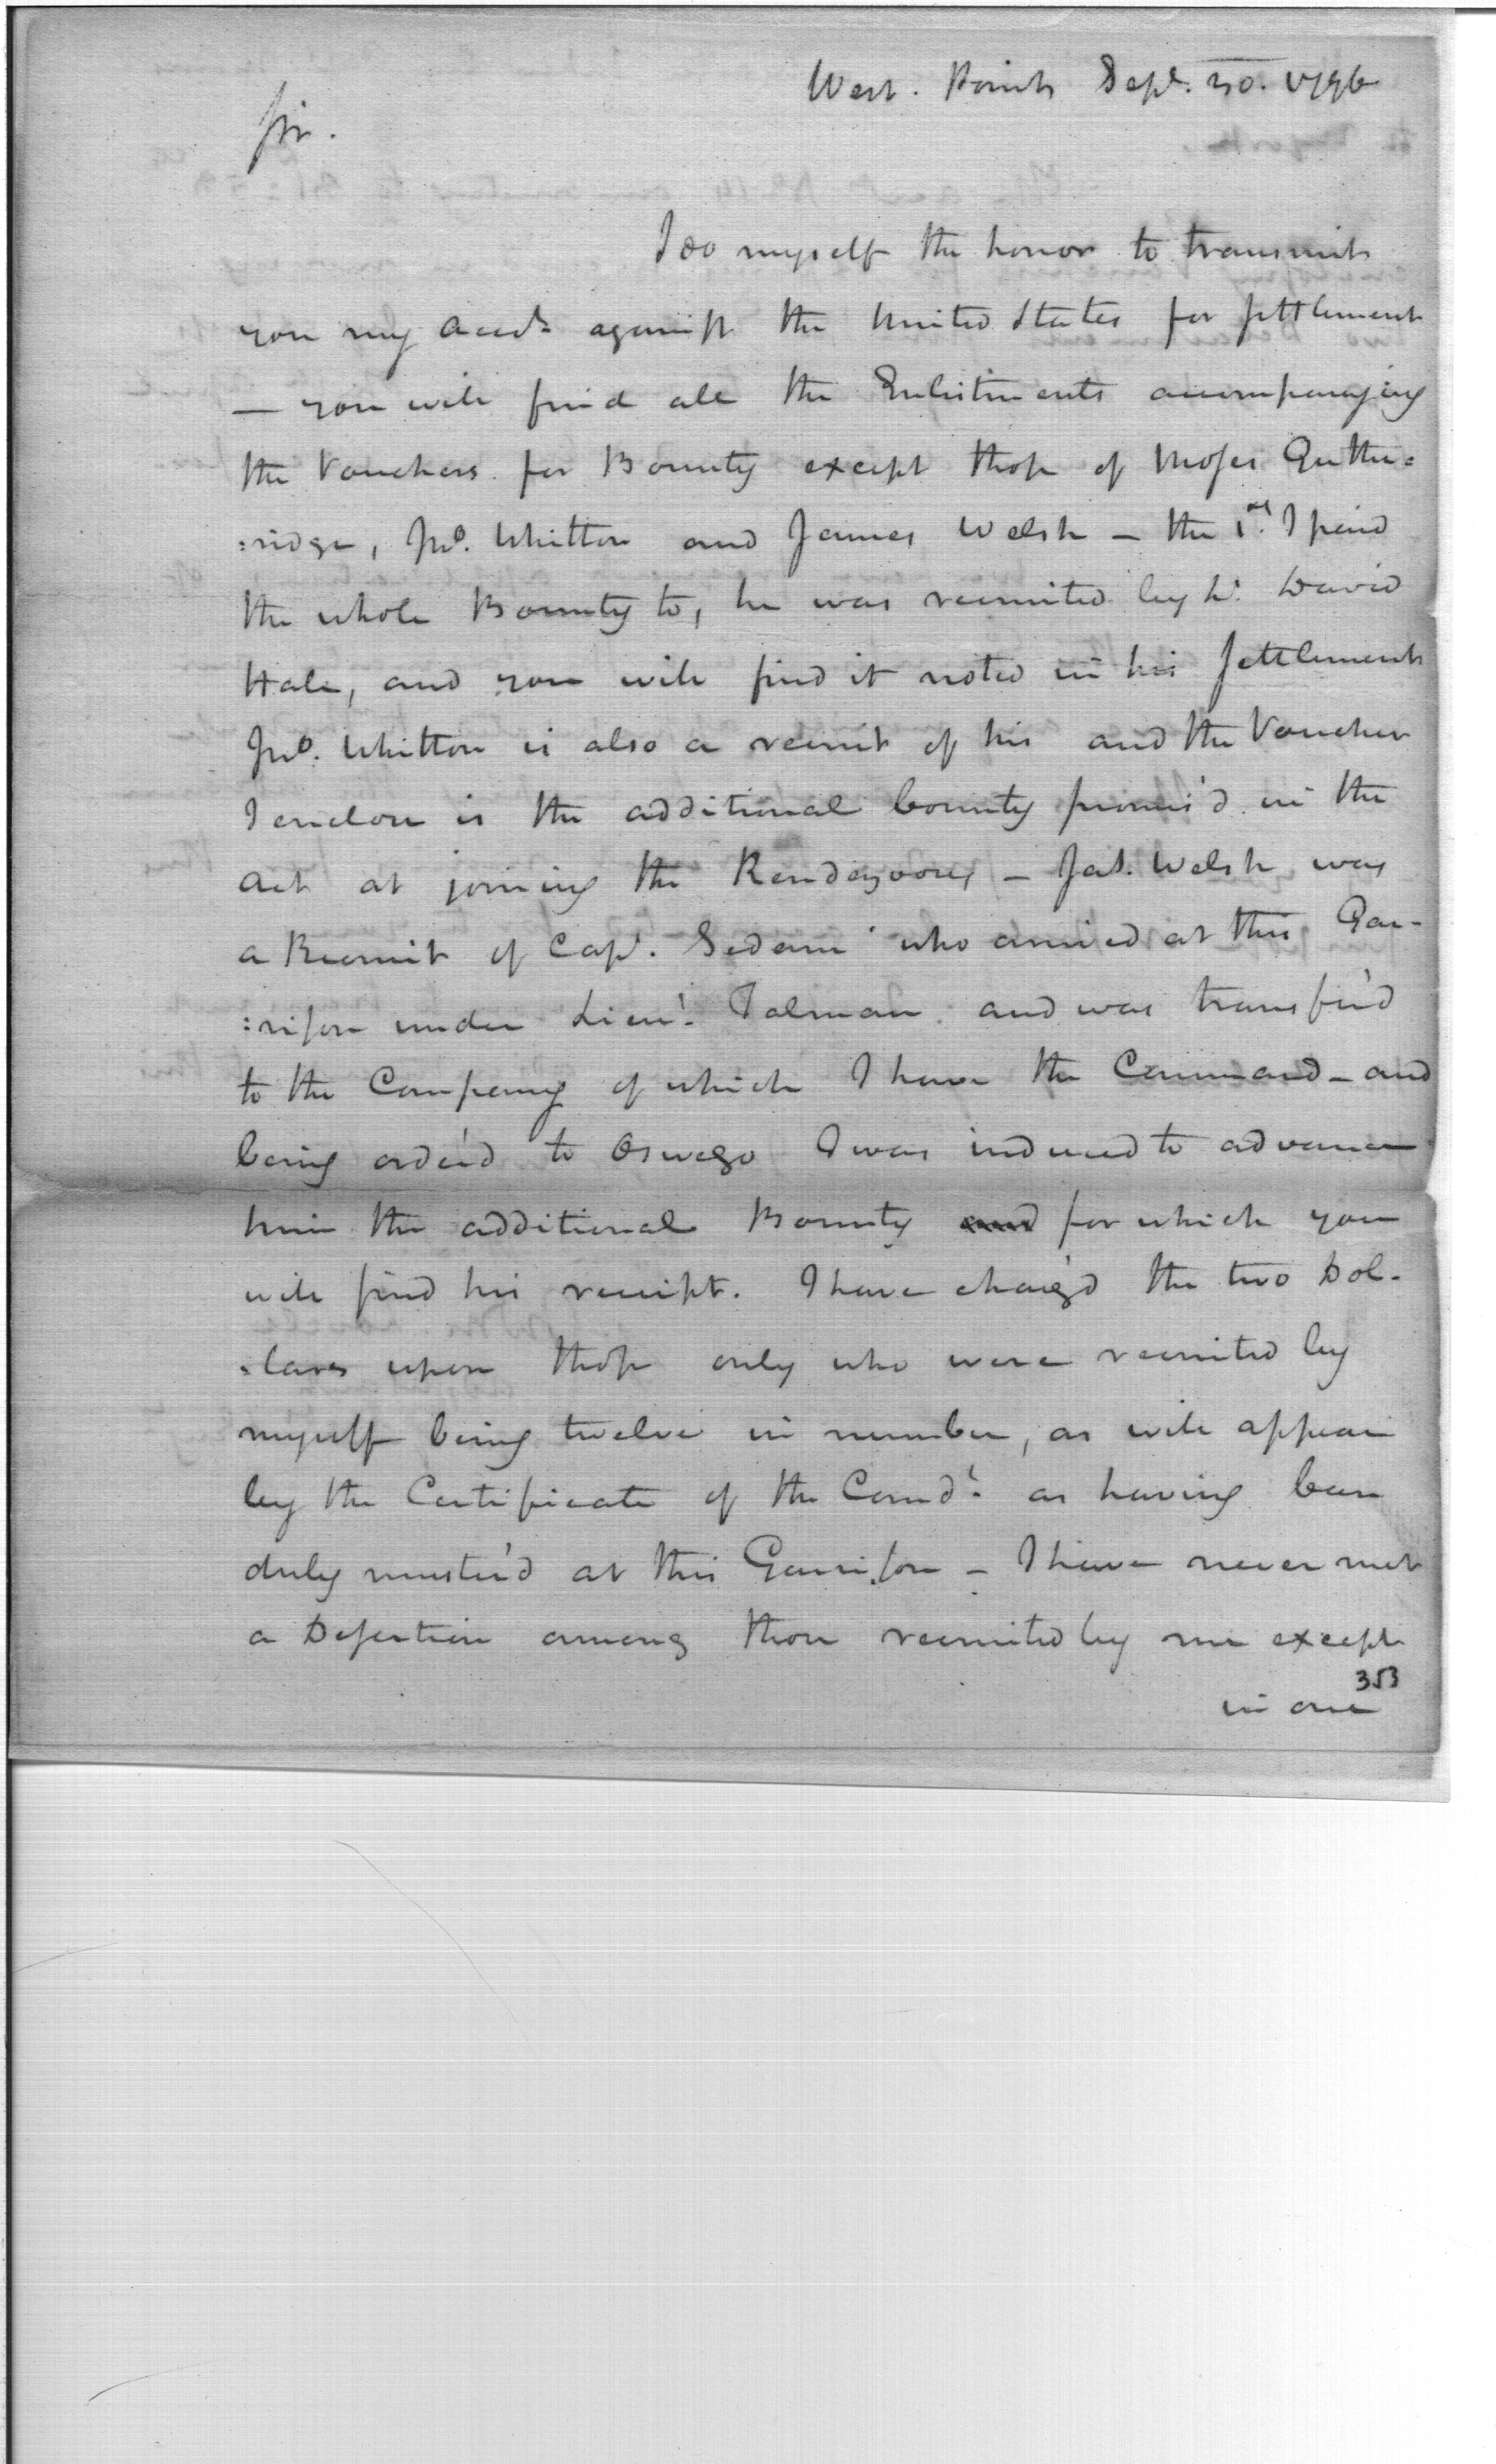 West. Point Sept. 30. 1796
Sir.
I do myself the honor to transmit
you my Accts against the United States for settlement
— you will find all the Enlistments accompanying
the Vouchers for Bounty except those of Moses Guthe=
:ridge, Jno. Whitton and James Welsh — the 1st. I paid
the whole Bounty to, he was recruited by Lt. David
Hale, and you will find it noted in his settlement
Jno. Whitton is also a recruit of his and the Voucher
I enclose is the additional bounty promis'd in the
act at joining the Rendezvous — Jas. Welsh was
a Recruit of Capt. Sedam who arrived at this Gar-
:rison under Lieut. Talman and was transfer'd
to the Company of which I have the Command — and
being order'd to Oswego I was induced to advance
him the additional Bounty for which you
will find his receipt. I have charg'd the two Dol-
:lars upon those only who were recruited by
myself being twelve in number, as will appear
by the Certificate of the Comdt. as having been
duly muster'd at this Garrison — I have never met
a Desertion among those recruited by me except
353
in one